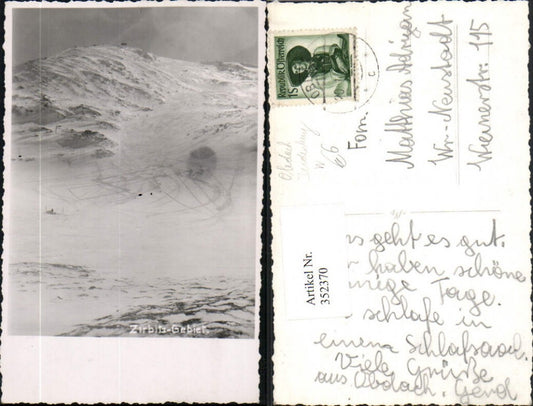 Zirbitz-Gebiet.
1S
REPUBLIK ÖSTERREICH
Obdach
66
Fam.
Matthias Adrigan
Wr.-Neustadt
Wienerstr. 115
Artikel Nr.
352370
geht es gut.
haben schöne
Tage.
schlafe in
einem Schlafsaal.
Viele Grüße
aus Obdach. Gerd